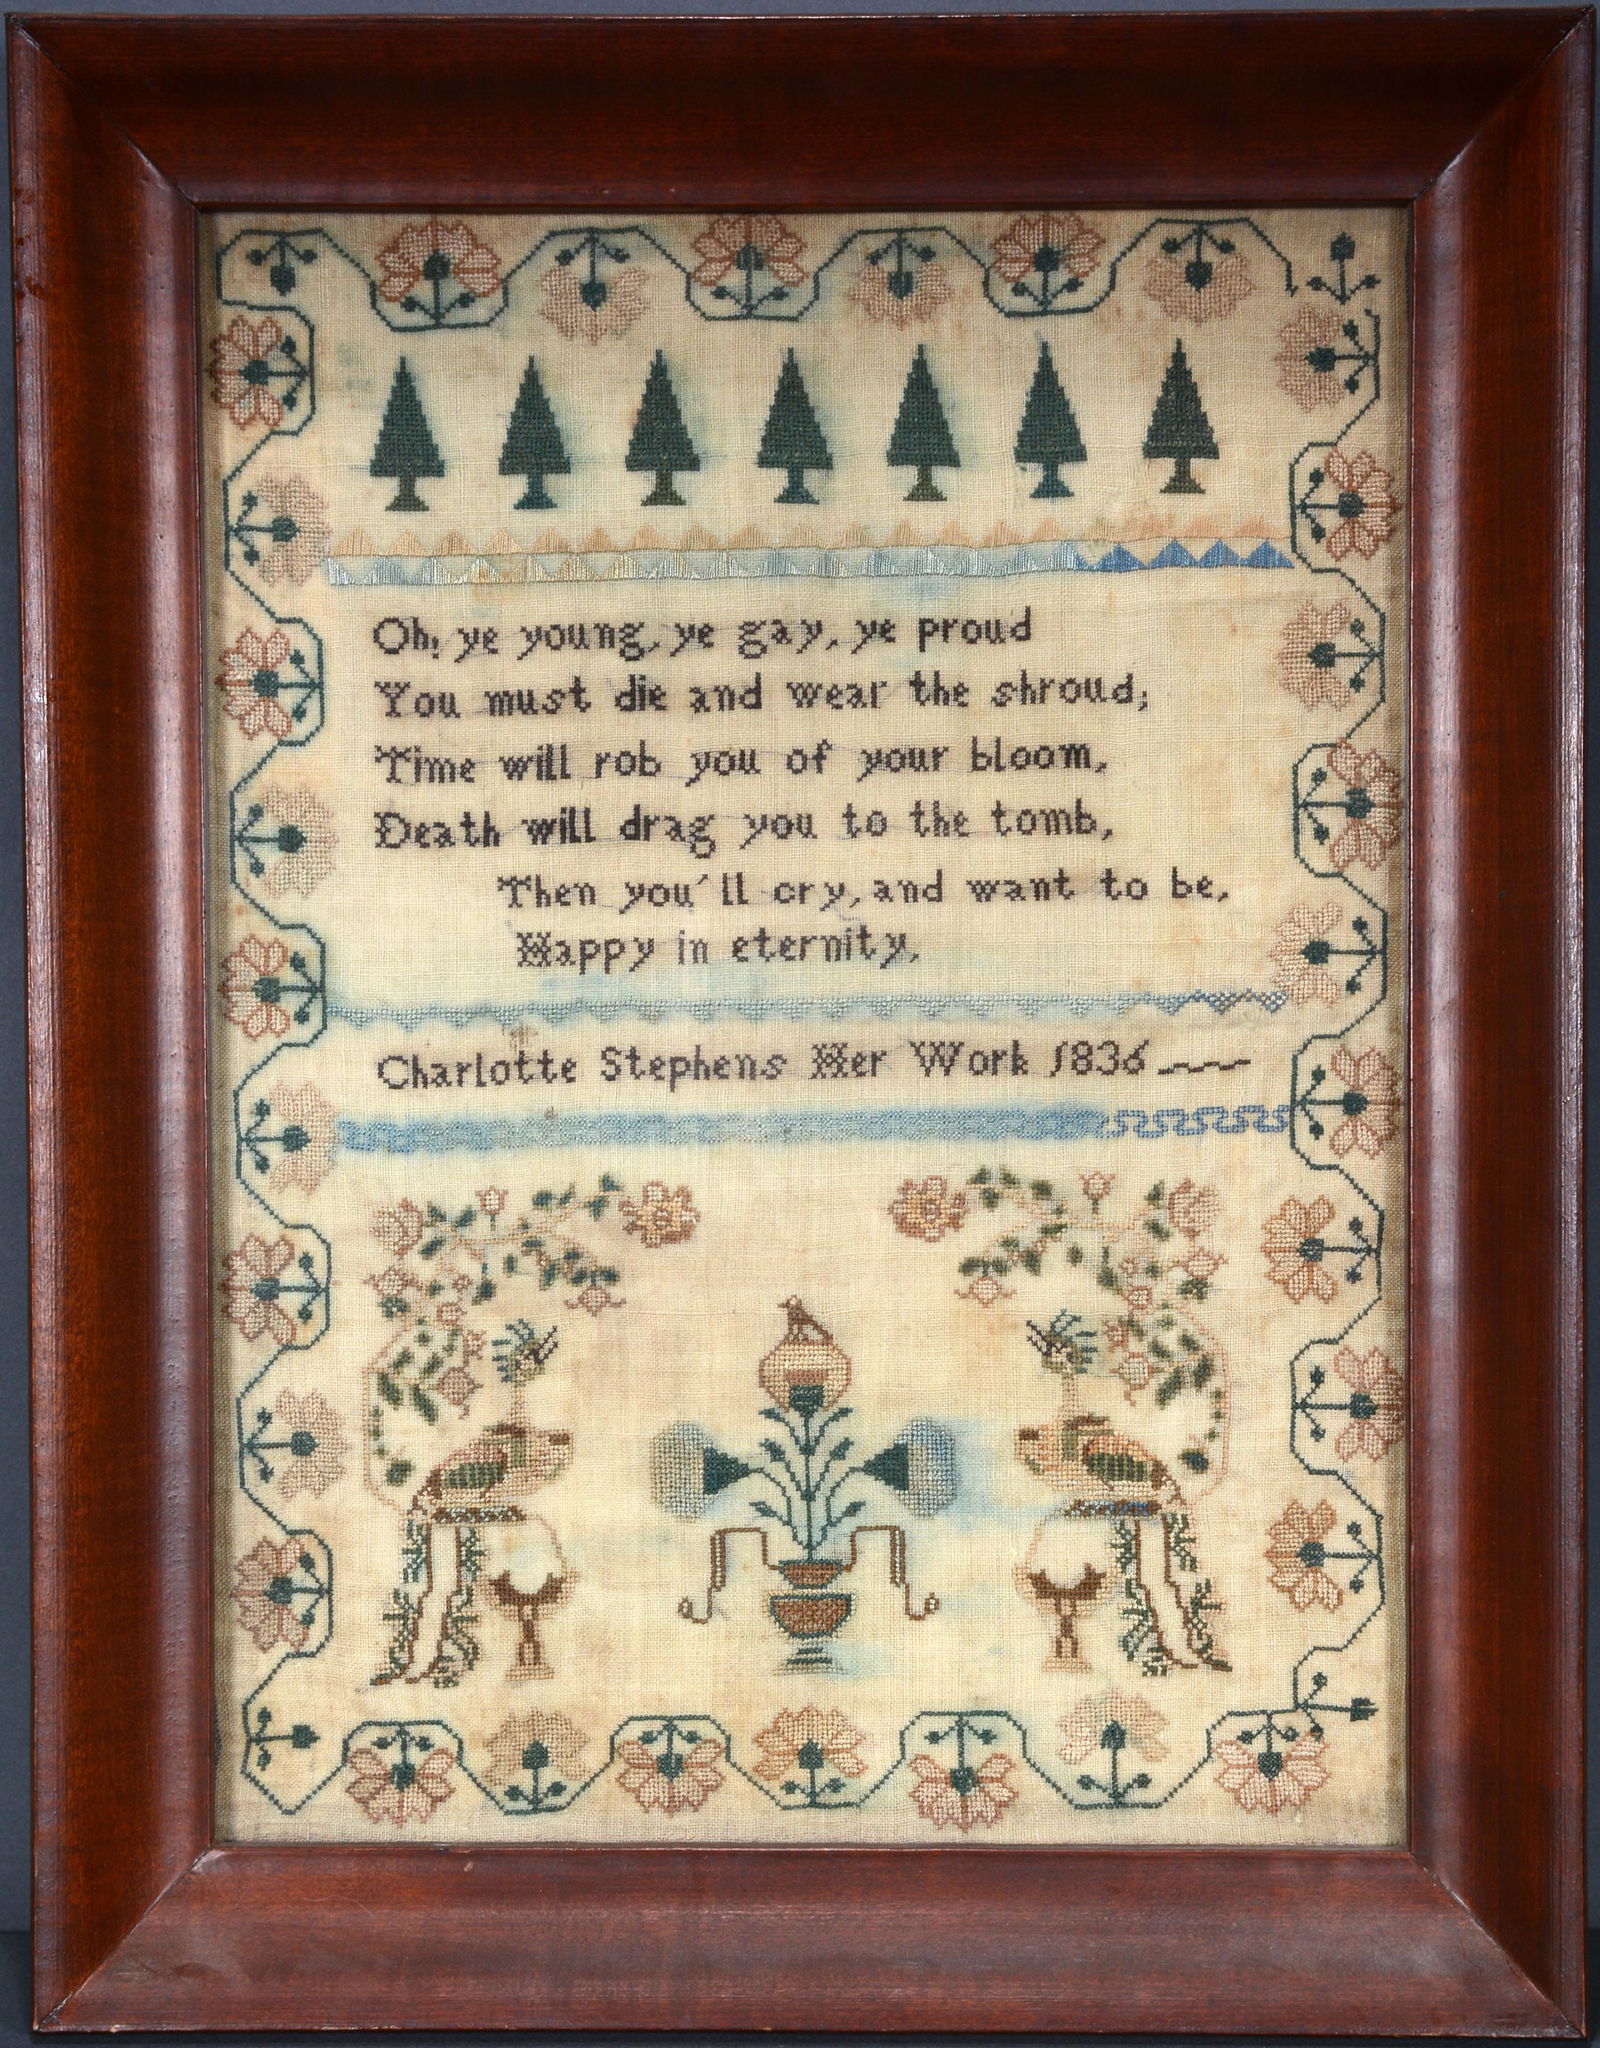 Oh; ye young, ye gay, ye proud
You must die and wear the shroud;
Time will rob you of your bloom,
Death will drag you to the tomb,
Then you'll cry, and want to be,
Happy in eternity,
Charlotte Stephens Her Work 1836